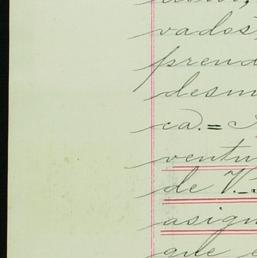 vados,
prend
desm
ca. =
ventu
de V.
asign
que